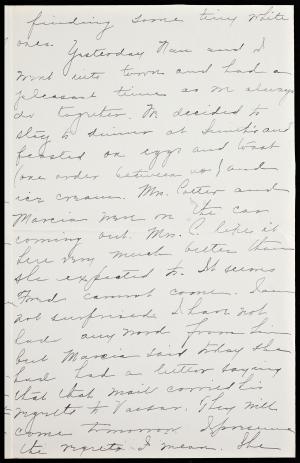 finding some tiny white
ones. Yesterday Nan and I
went into town and had a
pleasant time as we always
do together. We decided to
stay to dinner at and
feasted on eggs and toast
(one order between us) and
ice cream. Mrs. Porter and
Marcia were on the car
coming out. Mrs. P. likes it
here very much better than
she expected to. It seems
Ford cannot come. I am
not surprised I have not
had any word from him
but Marcia said today she
had had a letter saying
that that mail carried his
regrets to Vassar. They will
come tomorrow I presume
the regrets I mean. She